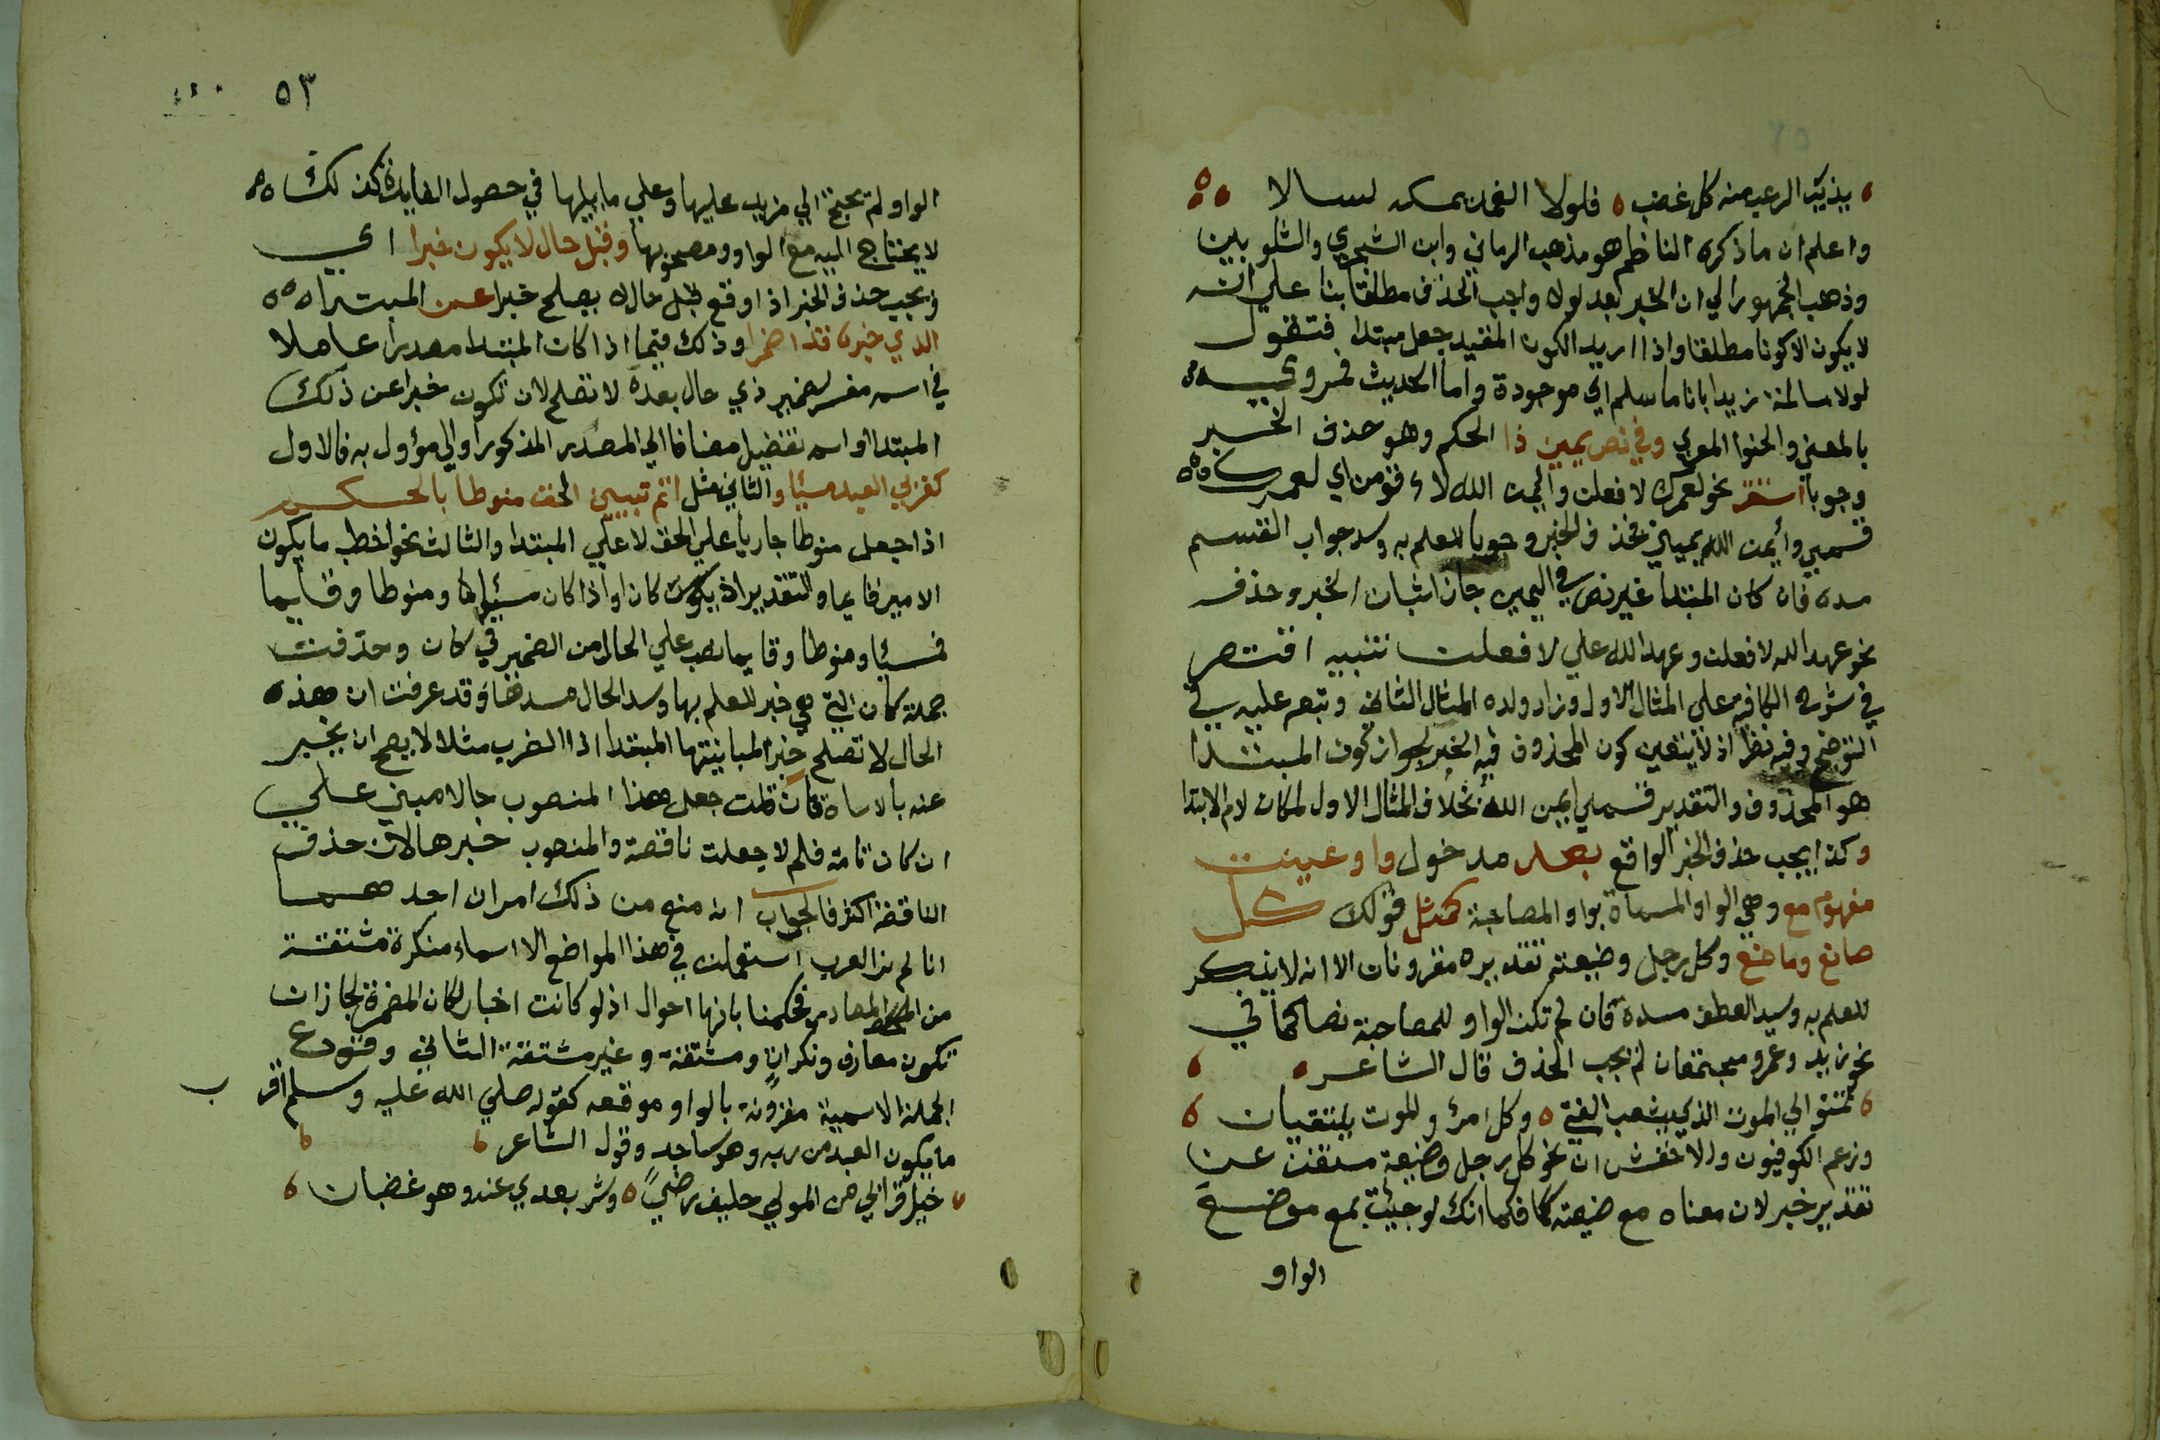 يذيب الرعب منه كل غضب فلولا الغمد يمسكه لسالا
واعلم ان ما ذكره الناظم هو مذهب الرماني وابن الشجري والشلوبين
وذهب الجمهور الي ان الخبر بعد لولا واجب الحذف مطلقا بنا علي انه
لا يكون الا كونا مطلقا واذا اريد الكون المقيد جعل مبتدا فتقول
لولا مسالمة زيد ايانا ما سلم اي موجودة واما الحديث فمروي
بالمعني ولحنوا المعري وفي نص يمين ذا الحكم وهو حذف الخبر
وجوبا استقر نحو لعمرك لا فعلن وايمن الله لاقومن اي لعمرك
قسمي وأيمن الله يميني فحذف الخبر وجوبا للعلم به وسد جواب القسم
مسده فان كان المبتدا غير نص في اليمين جاز اثبات الخبر وحذفه
نحو عهد الله لا فعلن وعهد الله علي لا فعلت تنبيه اقتصر
في شرح الكافيه علي المثال الاول وزاد ولده المثال الثاني وتبعه عليه في
التوضيح وفيه نظر اذ لا يتعين كون المحذوف فيه الخبر لجواز كون المبتدا
هو المحذوف والتقدير قسمي ايمن الله بخلاف المثال الاول لمكان لام الابتدا
وكذا يجب حذف الخبر الواقع بعد مدخول واو عينت
مفهوم مع وهي الواو المسماة بواو المصاحبة كمثل قولك كل
صانع وما صنع وكل رجل وضيعته تقديره مقرونان الا انه لا يذكر
للعلم به وسد العطف مسده فان لم تكن الواو للمصاحبة نصا كما في
نحو زيد وعمرو مجتمعان لم يجب الحذف قال الشاعر
تمنوا لي الموت الذي يشعب الفتي وكل امرئ والموت يلتقيان
وزعم الكوفيون والاخفش ان نحو كل رجل وضيعته مستغن عن
تقدير خبر لان معناه مع ضيعته فكما انك لو جئت بمع موضع
الواو
٥٣
الواو لم تحتج الي مزيد عليها وعلي ما يليها في حصول الفايدة كذلك
لا يحتاج اليه مع الواو ومصحوبها وقبل حال لا يكون خبرا اي
ويجب حذف الخبر اذا وقع قبل حال لا يصلح خبرا عن المبتدا
الذي خبره قد اضمرا وذلك فيما اذا كان المبتدا مصدرا عاملا
في اسم مفسر لضمير ذي حال بعده لا تصلح لان تكون خبرا عن ذلك
المبتدا او اسم تفضيل مضافا الي المصدر المذكور او الي مؤول به فالاول
كضربي العبد مسيئا والثاني مثل اتم تبييني الحق منوطا بالحكم
اذا جعل منوطا جاريا علي الحق لا علي المبتدا والثالث نحو اخطب ما يكون
الامير قايما والتقدير اذ كان او اذا كان مسيئا ومنوطا وقايما
فمسيئا ومنوطا وقايما نصب علي الحال من الضمير في كان وحذفت
جملة كان التي هي خبر للعلم بها وسد الحال مسدها وقد عرفت ان هذه
الحال لا تصلح خبرا لمباينتها المبتدا اذ الضرب مثلا لا يصح ان يخبر
عنه بالاساة فان قلت جعل هذا المنصوب حالا مبني علي
ان كان تامة فلم لا جعلت ناقصة والمنصوب خبرها لان حذف
الناقصة اكثر فالجواب انه منع من ذلك امران احدهما
انا لم نر العرب استعملت في هذا المواضع الا اسماء منكرة مشتقة
من المصادر فحكمنا بانها احوال اذ لو كانت اخبار لكان المضمرة لجاز ان
تكون معارف ونكرات ومشتقة وغير مشتقة الثاني وقوع
الجملة الاسمية مقرونة بالواو موقعه كقوله صلي الله عليه وسلم اقرب
ما يكون العبد من ربه وهو ساجد وقول الشاعر
خير اقترابي من المولي حليف رضيً وشر بعدي عنه وهو غضبان